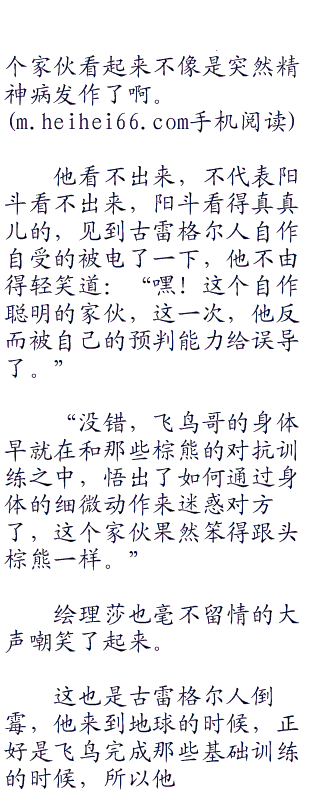 个家伙看起来不像是突然精
神病发作了啊。
(m.heihei66.com手机阅读)
他看不出来，不代表阳
斗看不出来，阳斗看得真真
儿的，见到古雷格尔人自作
自受的被电了一下，他不由
得轻笑道：“嘿！这个自作
聪明的家伙，这一次，他反
而被自己的预判能力给误导
了。”
“没错，飞鸟哥的身体
早就在和那些棕熊的对抗训
练之中，悟出了如何通过身
体的细微动作来迷惑对方
了，这个家伙果然笨得跟头
棕熊一样。”
绘理莎也毫不留情的大
声嘲笑了起来。
这也是古雷格尔人倒
霉，他来到地球的时候，正
好是飞鸟完成那些基础训练
的时候，所以他